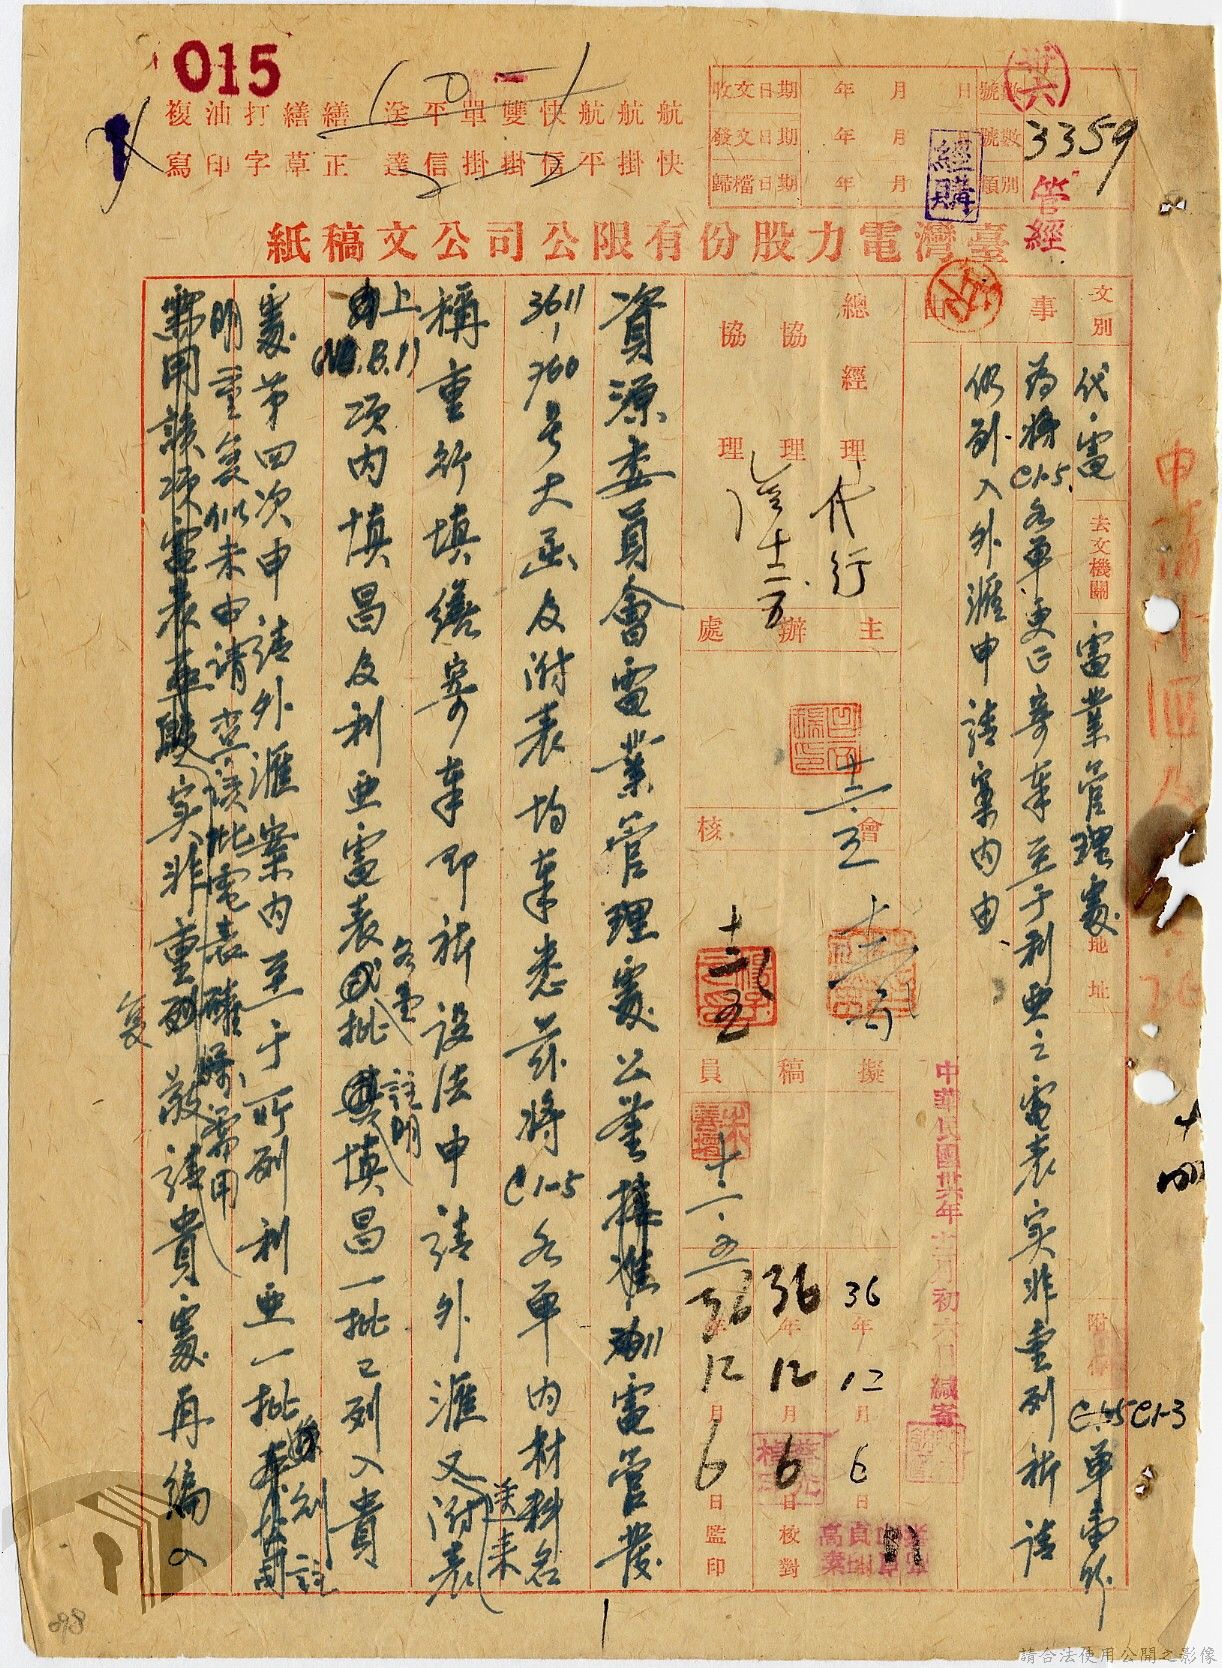 015
複寫
油印
打字
繕草
繕正
送達
平信
單掛
雙掛
快信
航平
航掛
航快
收文日期 年 月 日 號數
發文日期 年 月 日 號數
歸檔日期 年 月 類別
卅六
3359
經購
管經
臺灣電力股份有限公司公文稿紙
文別 代電
去文機關 電業管理處
地址
附件 C1-5 C1-3 單壹份
事由
為將C1-5各單更正寄奉至于利亞之電表实非重列祈請
仍列入外滙申請案内由
總經理 代行
協理
協理
十二 五
主辦處
會核
擬稿員
十二 五
中華民國卅六年十二月初六日 緘寄
36年12月6日
36年12月6日校對
36年12月6日監印
資源委員會電業管理處公鑒接准 電管發
3611-760号大函及附表均奉悉茲將C1-5各單内材料名
稱重新填繕寄奉即祈設法申請外滙又附表送来
上(No.B.1)項内填昌及利亜電表各壹批註明填昌一批已列入貴
處第四次申請外滙案内至于所列利亜一批
明重复似未申請查該批電表確係需用
需用該項電表 实非重列复敬請貴處再編入
1
898
請合法使用公開之影像